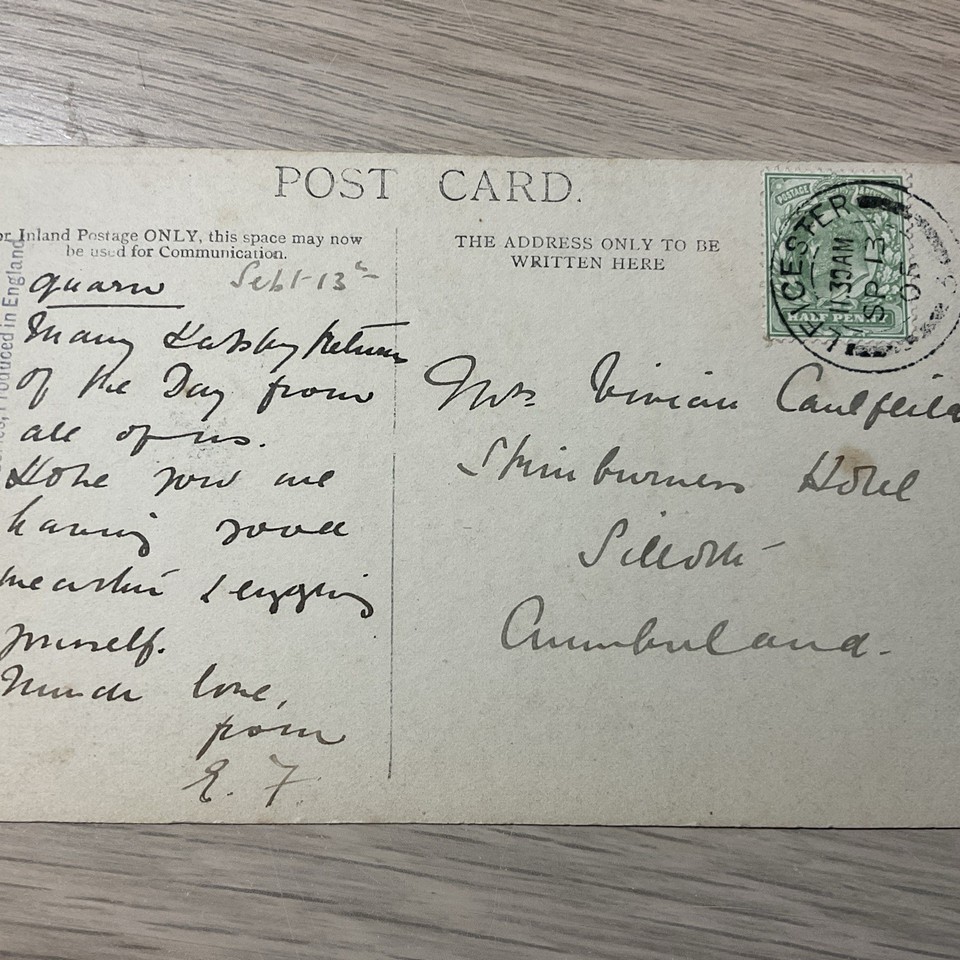 POST CARD.
or Inland Postage ONLY, this space may now
be used for Communication.
THE ADDRESS ONLY TO BE
WRITTEN HERE
Produced in England
POSTAGE
HALF PENNY
LEICESTER
11.30AM
SP 13
05
Quorn Sept 13th
Many Happy Returns
of the Day from
all of us.
Hope you are
having good
weather & enjoying
yourself.
Much love,
from
E. F.
Mrs. Vivian Caulfeild
Skinburness Hotel
Silloth
Cumberland.